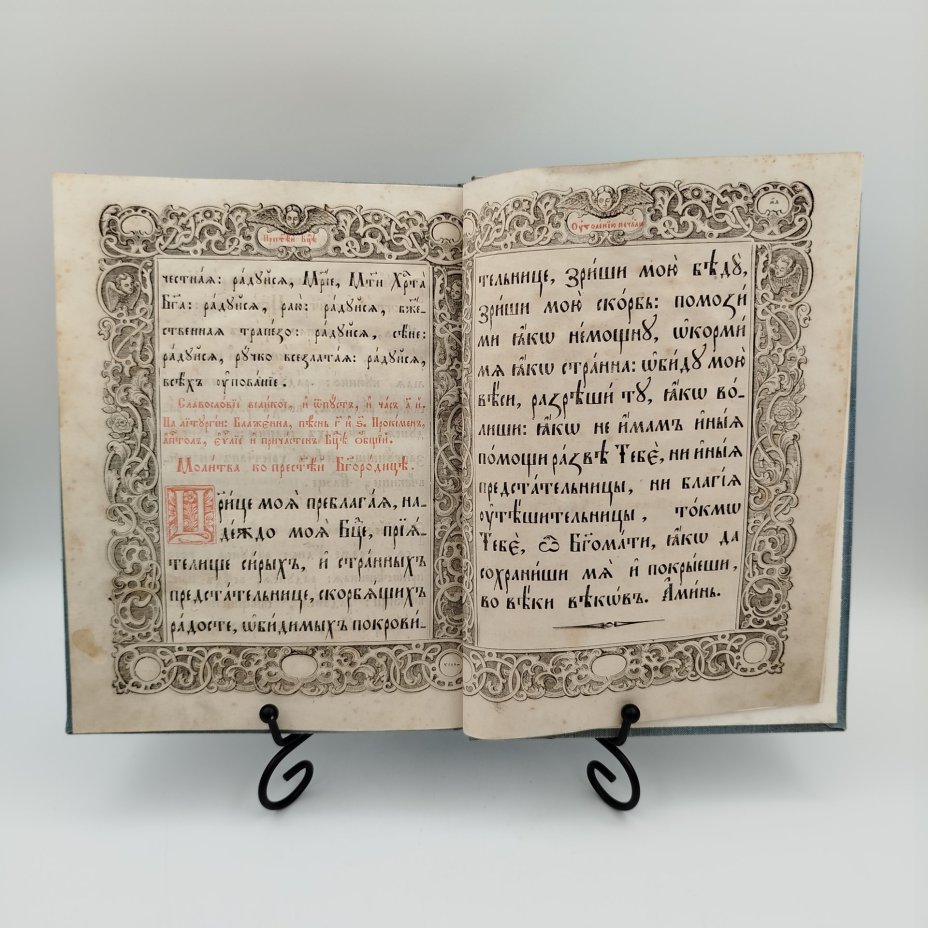 Прест҃ѣй Бцⷣѣ
честна́ѧ: ра́дꙋйсѧ, Мр҃і́е, Мт҃и Хрⷭ҇та̀
Бг҃а: ра́дꙋйсѧ, раю̀: ра́дꙋйсѧ, бжⷭ҇е-
ственнаѧ трапе́зо: ра́дꙋйсѧ, сѣ́не:
ра́дꙋйсѧ, рꙋ́чко всезлата́ѧ: ра́дꙋйсѧ,
всѣ́хъ ᲂу҆пова́нїе.
Славосло́вїе вели́кое, и҆ ѿпꙋ́стъ, и҆ ча́съ г҃ й.
На лїтꙋргі́и: Блаже́нна, пѣ́снь г҃ и҆ ѕ҃. Прокі́менъ,
а҆пⷭ҇толъ, є҆ѵⷢ҇лїе и҆ прича́стенъ Бцⷣѣ ѻ҆́бщїй.
Моли́тва ко прест҃ѣ́й Бг҃оро́дицѣ.
Цр҃и́це моѧ̀ преблага́ѧ, на-
де́ждо моѧ̀ Бцⷣе, прїѧ́-
телище си́рыхъ, и҆ стра́нныхъ
предста́тельнице, скорбѧ́щихъ
ра́досте, ѡ҆би́димыхъ покрови́-
Оу҆толе́нїю печа́ли
тельнице, зри́ши мою̀ бѣдꙋ̀,
зри́ши мою̀ ско́рбь: помози́
ми ꙗ҆́кѡ не́мощнꙋ, ѡ҆корми́
мѧ ꙗ҆́кѡ стра́нна: ѡ҆би́дꙋ мою̀
вѣ́си, разрѣшѝ тꙋ̀, ꙗ҆́кѡ во́-
лиши: ꙗ҆́кѡ не и҆́мамъ и҆ны́ѧ
по́мощи ра́звѣ Тебє̀, ни и҆ны́ѧ
предста́тельницы, ни благі́ѧ
ᲂу҆тѣ́шительницы, то́кмѡ
Тебє̀, ѽ Бг҃ома́ти, ꙗ҆́кѡ да
сохрани́ши мѧ̀ и҆ покры́еши,
во вѣ́ки вѣкѡ́въ. А҆ми́нь.